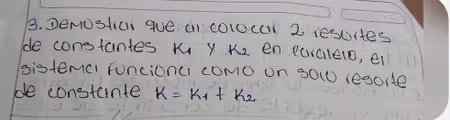 3. Demostrar que al colocar 2 resortes
de constantes K1 y K2 en paralelo, el
sistema funciona como un solo resorte
de constante K = K1 + K2